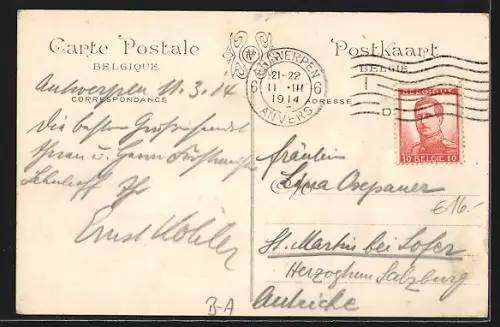 Carte Postale
BELGIQUE
CORRESPONDANCE
PostKaart
BELGIË
ADRESSE
ANTWERPEN
6 21-22 6
11 III
1914
ANVERS
BELGIQUE
10 BELGIË 10
Antwerpen 11.3.14
Die besten Grüße sendet
Ihnen u. Herrn
Ihr
Ernst Köhler
Fräulein
Osepauer
St. Martin bei Lofer
Herzogthum Salzburg
€16.-
B-A